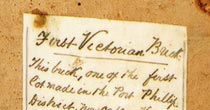 First Victorian Brick
This brick, one of the first
lot made in the Port Phillip
District,